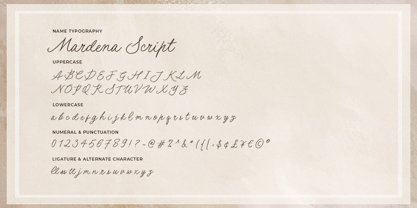 NAME TYPOGRAPHY
Mardena Script
UPPERCASE
ABCDEFGHIJKLM
NOPQRSTUVWXYZ
LOWERCASE
abcdefghijklmnopqrstuvwxyz
NUMERAL & PUNCTUATION
LIGATURE & ALTERNATE CHARACTER